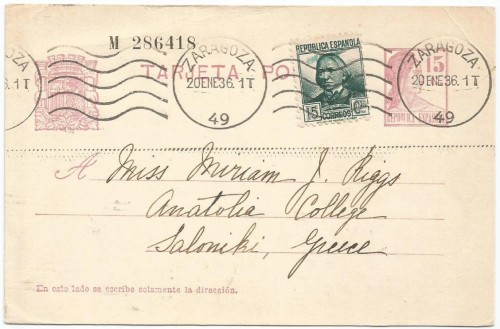 M 286418
TARJETA PO
ZARAGOZA
20 ENE 36. 1T
49
REPÚBLICA ESPAÑOLA
15 Cts
CORREOS
ZARAGOZA
20 ENE 36. 1T
49
15
ZA
36. 1T
A Miss Miriam J. Riggs
Anatolia College
Saloniki, Greece
En este lado se escribe solamente la dirección.